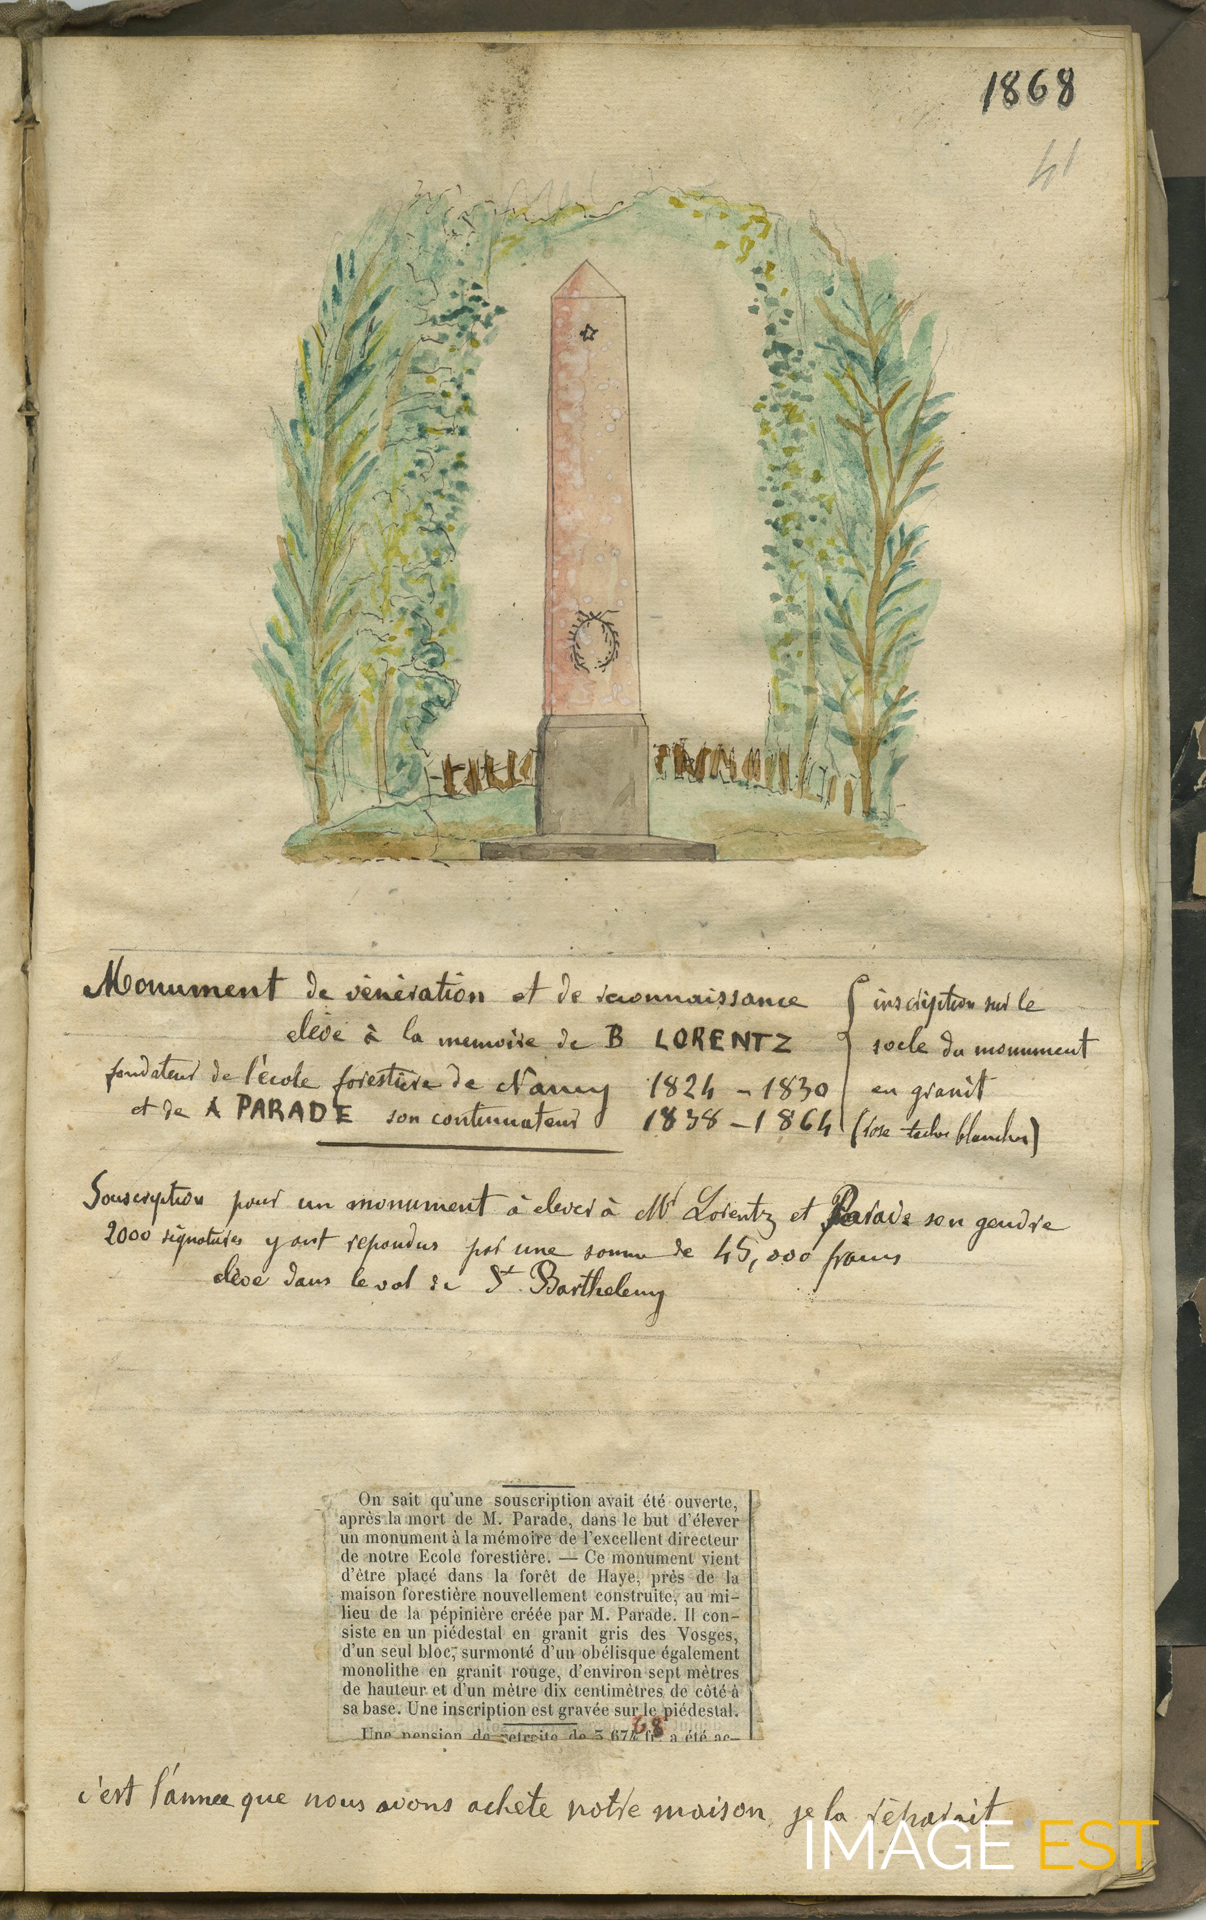 1868
41
Monument de vénération et de reconnaissance
élevé à la memoire de B LORENTZ
fondateur de l'école forestière de Nancy 1824 - 1830
et de A PARADE son continuateur 1838 - 1864
inscription sur le
socle du monument
en granit
(rose taches blanches)
Souscription pour un monument à elever à Mr Lorentz et Parade son gendre
2000 signatures y ont repondus par une somme de 45,000 francs
élevé dans le val de St. Barthelemy
On sait qu'une souscription avait été ouverte,
après la mort de M. Parade, dans le but d'élever
un monument à la mémoire de l'excellent directeur
de notre Ecole forestière. — Ce monument vient
d'être placé dans la forêt de Haye, près de la
maison forestière nouvellement construite, au mi-
lieu de la pépinière créée par M. Parade. Il con-
siste en un piédestal en granit gris des Vosges,
d'un seul bloc, surmonté d'un obélisque également
monolithe en granit rouge, d'environ sept mètres
de hauteur et d'un mètre dix centimètres de côté à
sa base. Une inscription est gravée sur le piédestal.
68
Une pension de retraite de 3,674 fr. a été ac-
c'est l'année que nous avons achete notre maison je la réparait
IMAGE EST